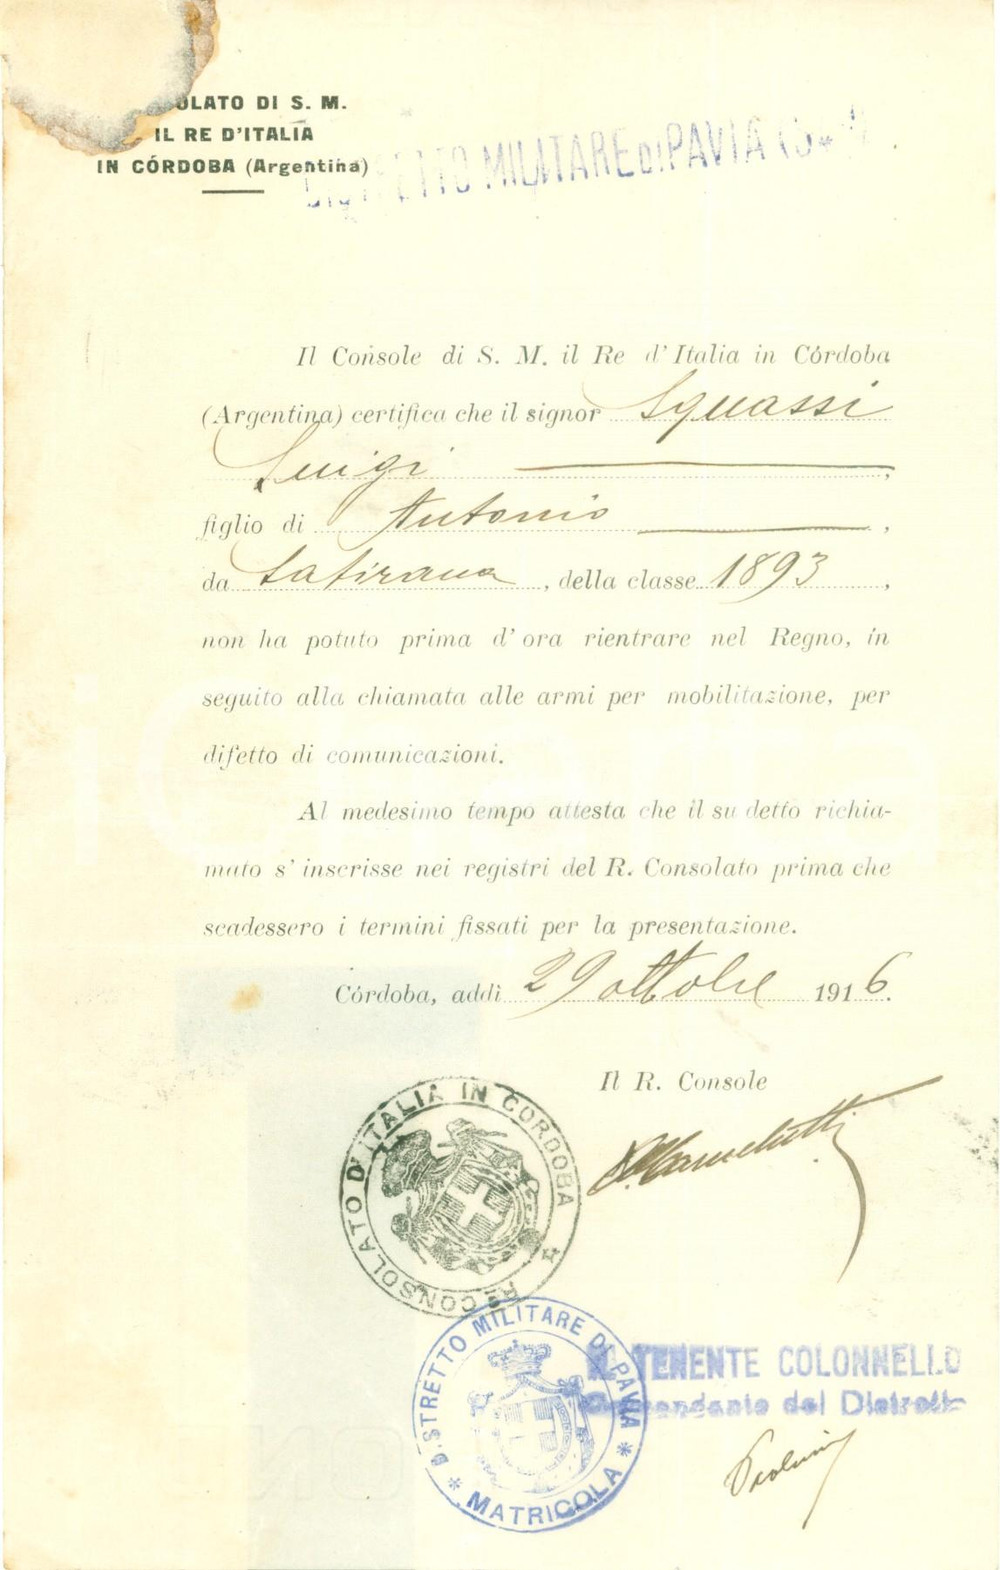 OLATO DI S. M.
IL RE D'ITALIA
IN CÓRDOBA (Argentina)
DISTRETTO MILITARE DI PAVIA
Il Console di S. M. il Re d'Italia in Córdoba
(Argentina) certifica che il signor Squassi
Luigi ,
figlio di Antonio ,
da Lafirana, della classe 1893,
non ha potuto prima d'ora rientrare nel Regno, in
seguito alla chiamata alle armi per mobilitazione, per
difetto di comunicazioni.
Al medesimo tempo attesta che il su detto richia-
mato s'inscrisse nei registri del R. Consolato prima che
scadessero i termini fissati per la presentazione.
Córdoba, addì 29 ottobre 1916.
Il R. Console
Rº CONSOLATO D'ITALIA IN CORDOBA
DISTRETTO MILITARE DI PAVIA
* MATRICOLA *
IL TENENTE COLONNELLO
Comandante del Distretto